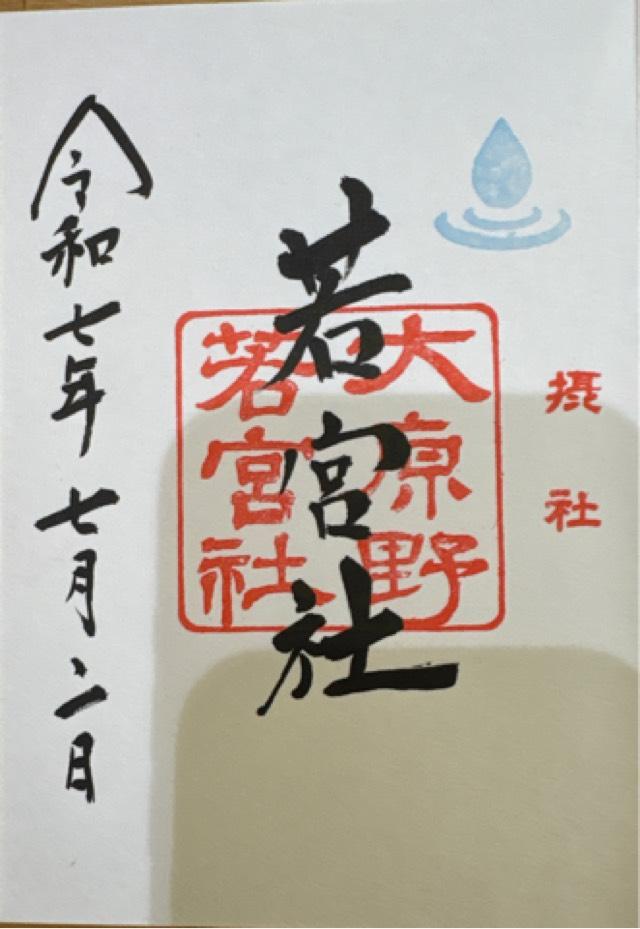 摂社
若宮社
大原野
若宮社
令和七年七月二日